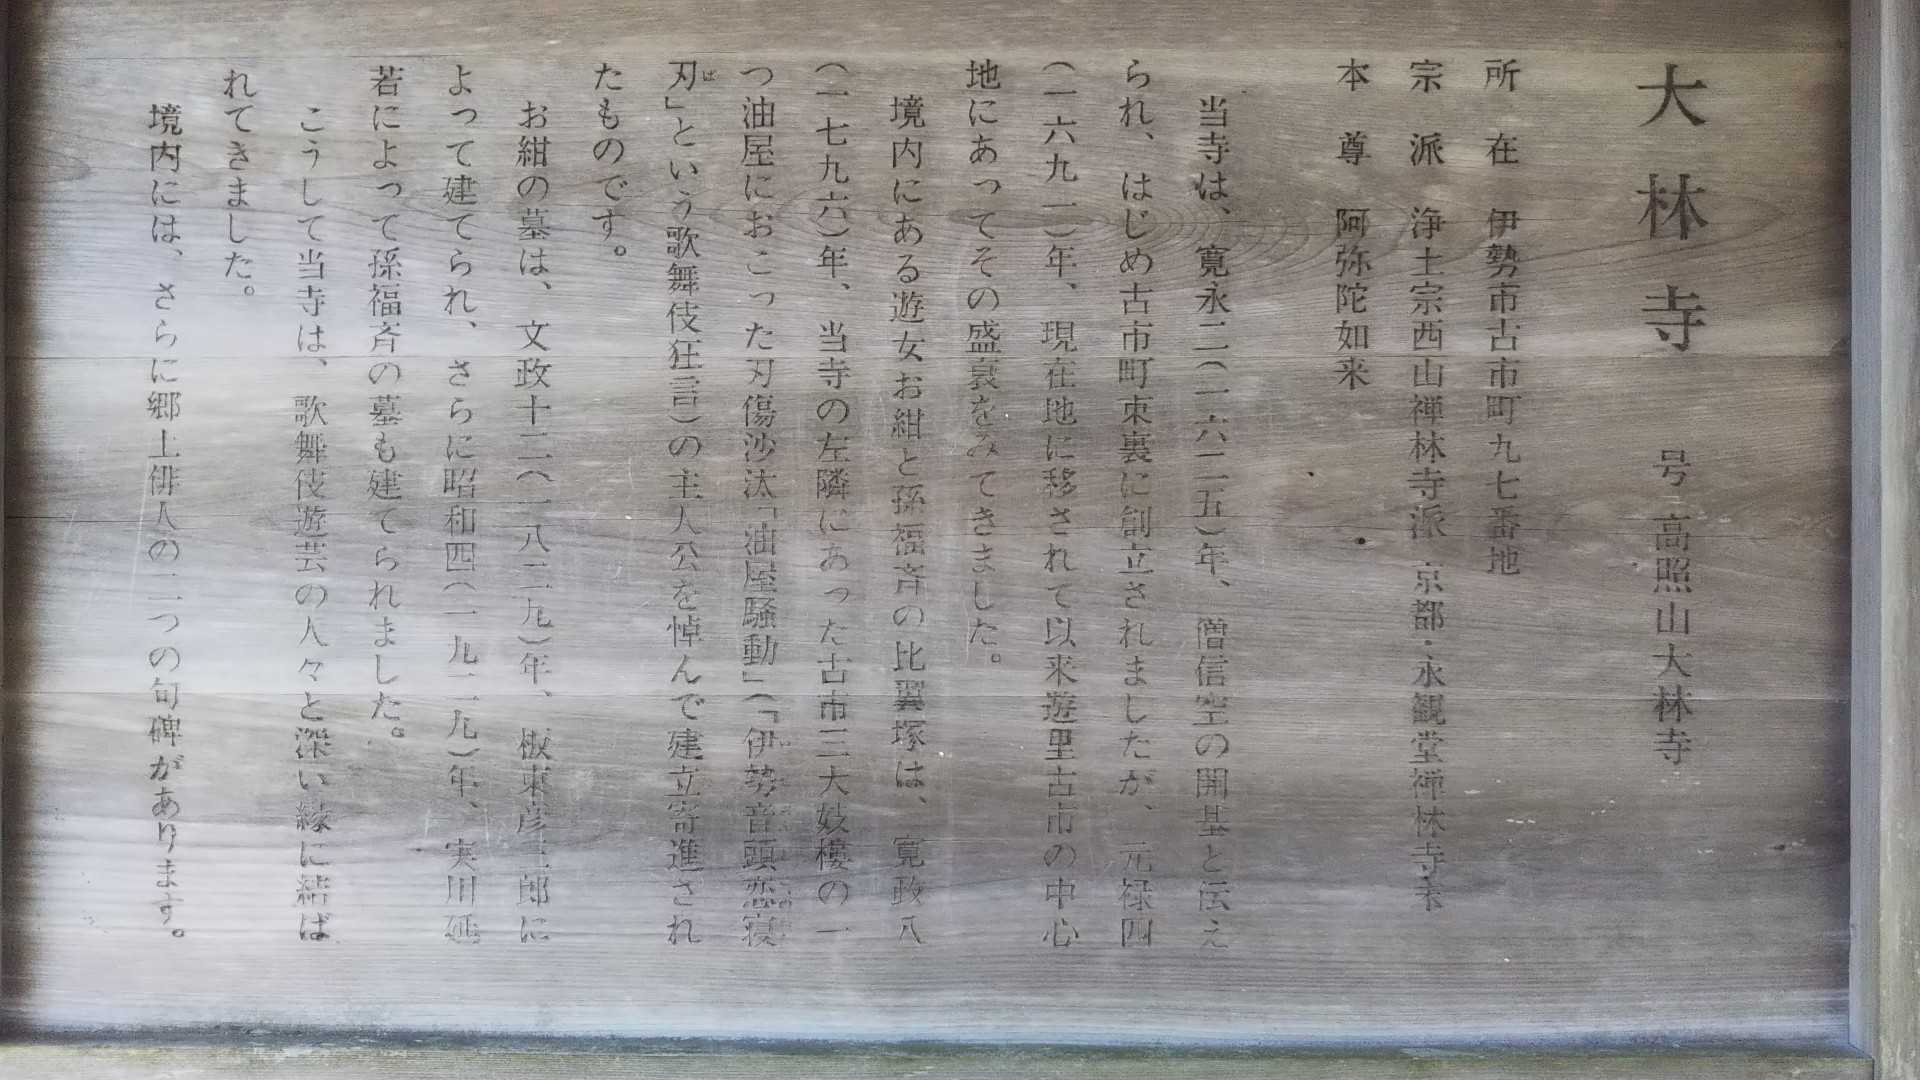 大林寺 号 高照山大林寺
所在 伊勢市古市町九七番地
宗派 浄土宗西山禅林寺派 京都・永観堂禅林寺末
本尊 阿弥陀如来
当寺は、寛永二(一六二五)年、僧信空の開基と伝え
られ、はじめ古市町東裏に創立されましたが、元禄四
(一六九一)年、現在地に移されて以来遊里古市の中心
地にあってその盛衰をみてきました。
境内にある遊女お紺と孫福斉の比翼塚は、寛政八
(一七九六)年、当寺の左隣にあった古市三大妓楼の一
つ油屋におこった刃傷沙汰「油屋騒動」(「伊勢音頭恋寝
刃」という歌舞伎狂言)の主人公を悼んで建立寄進され
たものです。
お紺の墓は、文政十二(一八二九)年、坂東彦三郎に
よって建てられ、さらに昭和四(一九二九)年、実川延
若によって孫福斉の墓も建てられました。
こうして当寺は、歌舞伎遊芸の人々と深い縁に結ば
れてきました。
境内には、さらに郷土俳人の二つの句碑があります。